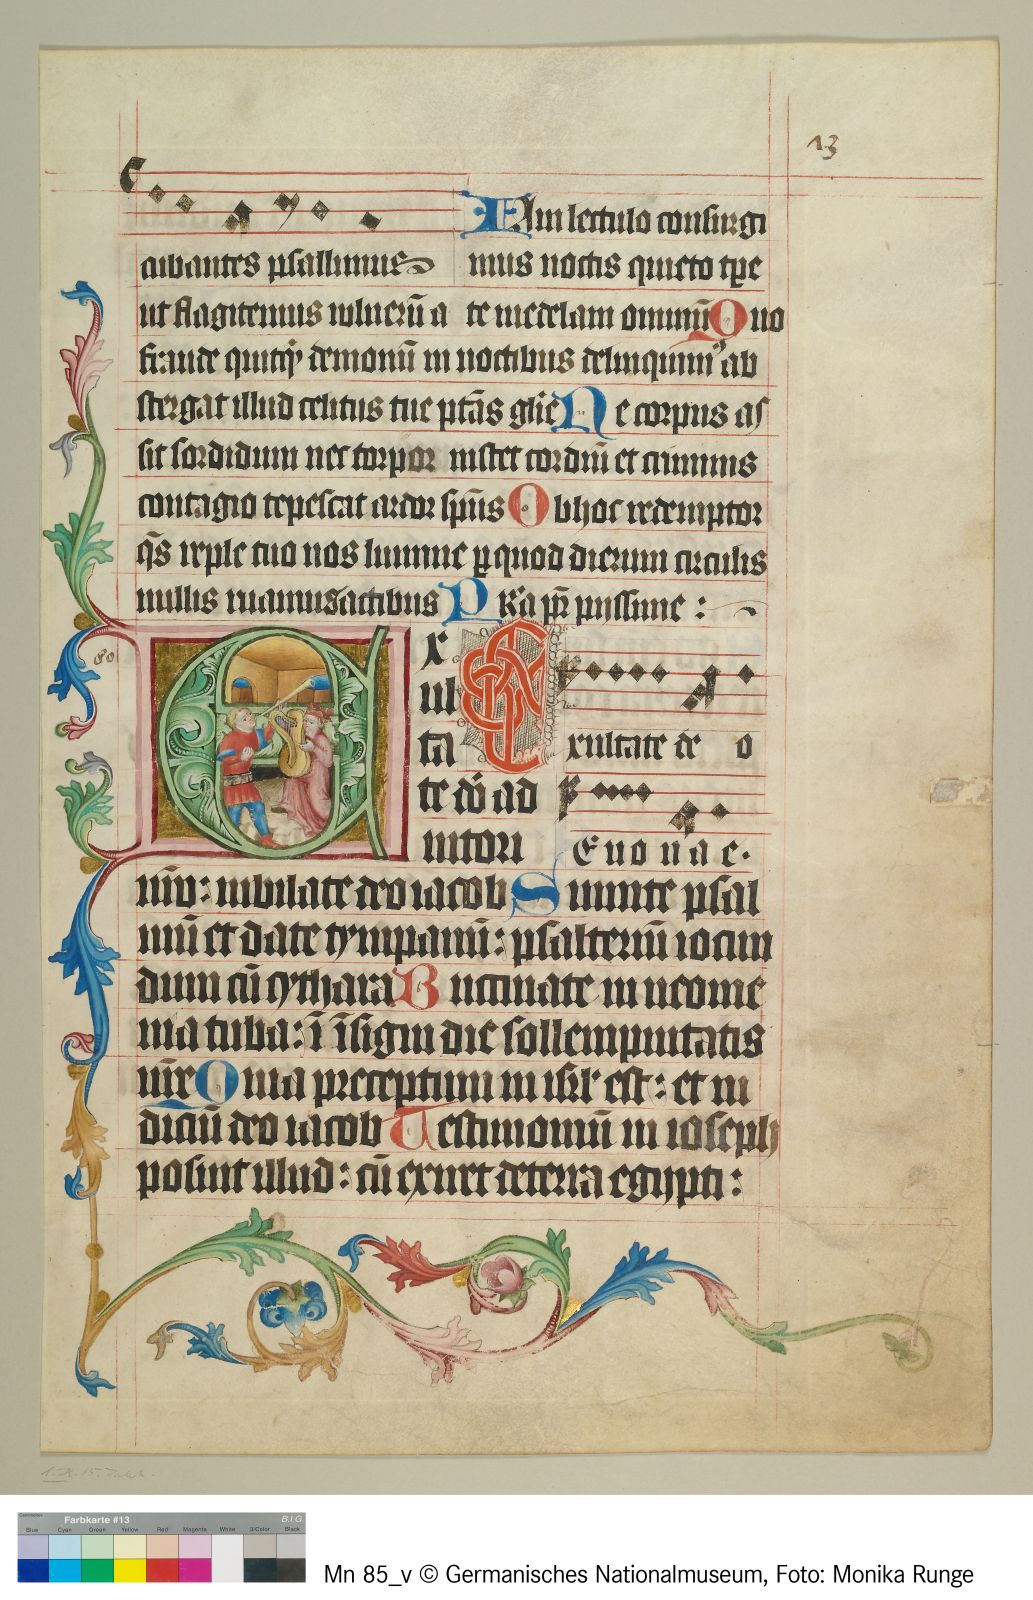 13
Am lectulo consurgi
mus noctis quieto tpe
ut flagitemus wlnerū a te medelam omniū Quo
fraude quitqʒ demonū in noctibus delinquimꝰ ab
stergat illud celitus tue ptās glīe Ne corpus as
sit sordidum nec torpor instet cordiū et criminis
contagio tepescat ardor spūs Ob hoc redemptor
q̄s reple tuo nos lumine ꝑ quod dierum circulis
nullis ruamus actibus P r̄a pr̄ pijssime :
80
Ex
ul
ta
te dō ad
iutori
Exultate de o
E u o u a e .
nr̄o : iubilate deo iacob Sumite psal
mū et date tympanū : psalteriū iocun
dum cū cythara Buccinate in neome
nia tuba : ī īsigni die sollempnitatis
nr̄e Quia preceptum in isrl est : et iu
diciū deo iacob Testimoniū in ioseph
posuit illud : cū exiret de terra egypti :
Farbkarte #13
B.I.G.
Blue Cyan Green Yellow Red Magenta White 3/Color Black
Mn 85_v © Germanisches Nationalmuseum, Foto: Monika Runge